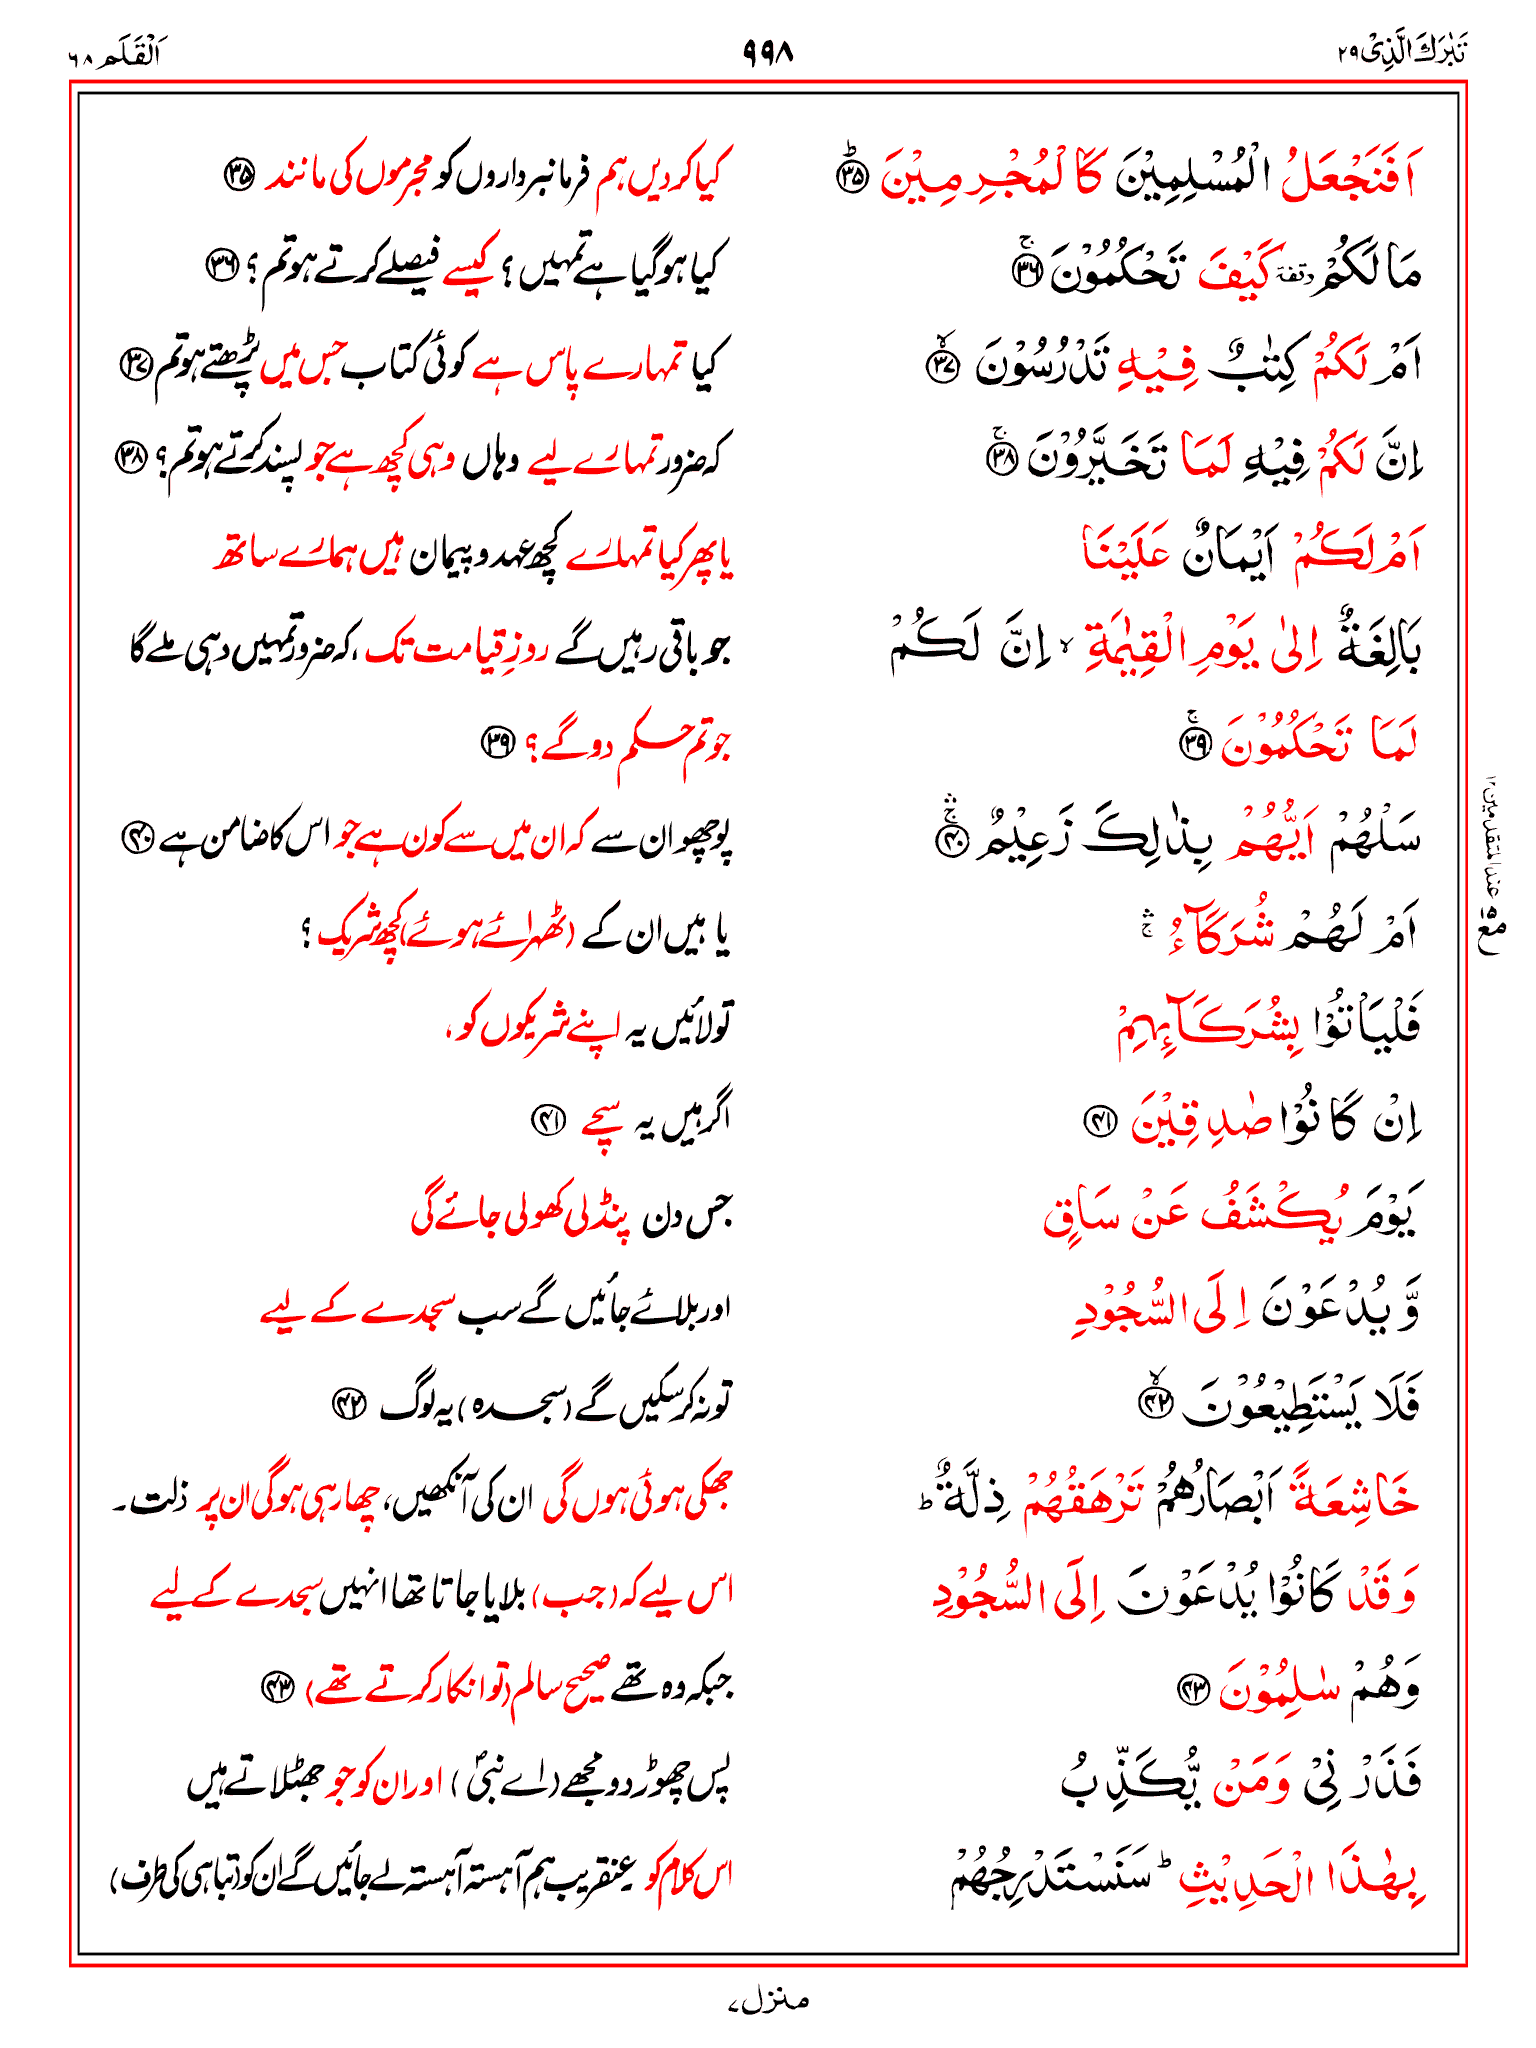 تَبٰرَكَ الَّذِىْ ۲۹ ۹۹۸ اَلْقَلَم ۶۸
اَفَنَجْعَلُ الْمُسْلِمِيْنَ كَالْمُجْرِمِيْنَ ؕ ۳۵ کیا کردیں ہم فرمانبرداروں کو مجرموں کی مانند ۳۵
مَا لَكُمْ وقفۃ كَيْفَ تَحْكُمُوْنَ ۚ ۳۶ کیا ہوگیا ہے تمہیں؟ کیسے فیصلے کرتے ہو تم؟ ۳۶
اَمْ لَكُمْ كِتٰبٌ فِيْهِ تَدْرُسُوْنَ ۙ ۳۷ کیا تمہارے پاس ہے کوئی کتاب جس میں پڑھتے ہو تم ۳۷
اِنَّ لَكُمْ فِيْهِ لَمَا تَخَيَّرُوْنَ ۚ ۳۸ کہ ضرور تمہارے لیے وہاں وہی کچھ ہے جو پسند کرتے ہو تم؟ ۳۸
اَمْ لَكُمْ اَيْمَانٌ عَلَيْنَا یا پھر کیا تمہارے کچھ عہد و پیمان ہیں ہمارے ساتھ
بَالِغَةٌ اِلٰى يَوْمِ الْقِيٰمَةِ ۙ اِنَّ لَكُمْ جو باقی رہیں گے روزِ قیامت تک، کہ ضرور تمہیں وہی ملے گا
لَمَا تَحْكُمُوْنَ ۚ ۳۹ جو تم حکم دو گے؟ ۳۹
سَلْهُمْ اَيُّهُمْ بِذٰلِكَ زَعِيْمٌ ۛۚ ۴۰ پوچھو ان سے کہ ان میں سے کون ہے جو اس کا ضامن ہے ۴۰
اَمْ لَهُمْ شُرَكَآءُ ۛۚ یا ہیں ان کے (ٹھہرائے ہوئے) کچھ شریک؟
فَلْيَاْتُوْا بِشُرَكَآئِهِمْ تو لائیں یہ اپنے شریکوں کو،
اِنْ كَانُوْا صٰدِقِيْنَ ۴۱ اگر ہیں یہ سچے ۴۱
يَوْمَ يُكْشَفُ عَنْ سَاقٍ جس دن پنڈلی کھولی جائے گی
وَّيُدْعَوْنَ اِلَى السُّجُوْدِ اور بلائے جائیں گے سب سجدے کے لیے
فَلَا يَسْتَطِيْعُوْنَ ۙ ۴۲ تو نہ کرسکیں گے (سجدہ) یہ لوگ ۴۲
خَاشِعَةً اَبْصَارُهُمْ تَرْهَقُهُمْ ذِلَّةٌ ؕ جھکی ہوئی ہوں گی ان کی آنکھیں، چھا رہی ہوگی ان پر ذلت۔
وَقَدْ كَانُوْا يُدْعَوْنَ اِلَى السُّجُوْدِ اس لیے کہ (جب) بلایا جاتا تھا انہیں سجدے کے لیے
وَهُمْ سٰلِمُوْنَ ۴۳ جبکہ وہ تھے صحیح سالم (تو انکار کرتے تھے) ۴۳
فَذَرْنِىْ وَمَنْ يُّكَذِّبُ پس چھوڑ دو مجھے (اے نبیؐ) اور ان کو جو جھٹلاتے ہیں
بِهٰذَا الْحَدِيْثِ ؕ سَنَسْتَدْرِجُهُمْ اس کلام کو عنقریب ہم آہستہ آہستہ لے جائیں گے ان کو (تباہی کی طرف)
مع عند المتقدمین ۱۲
منزل ۷